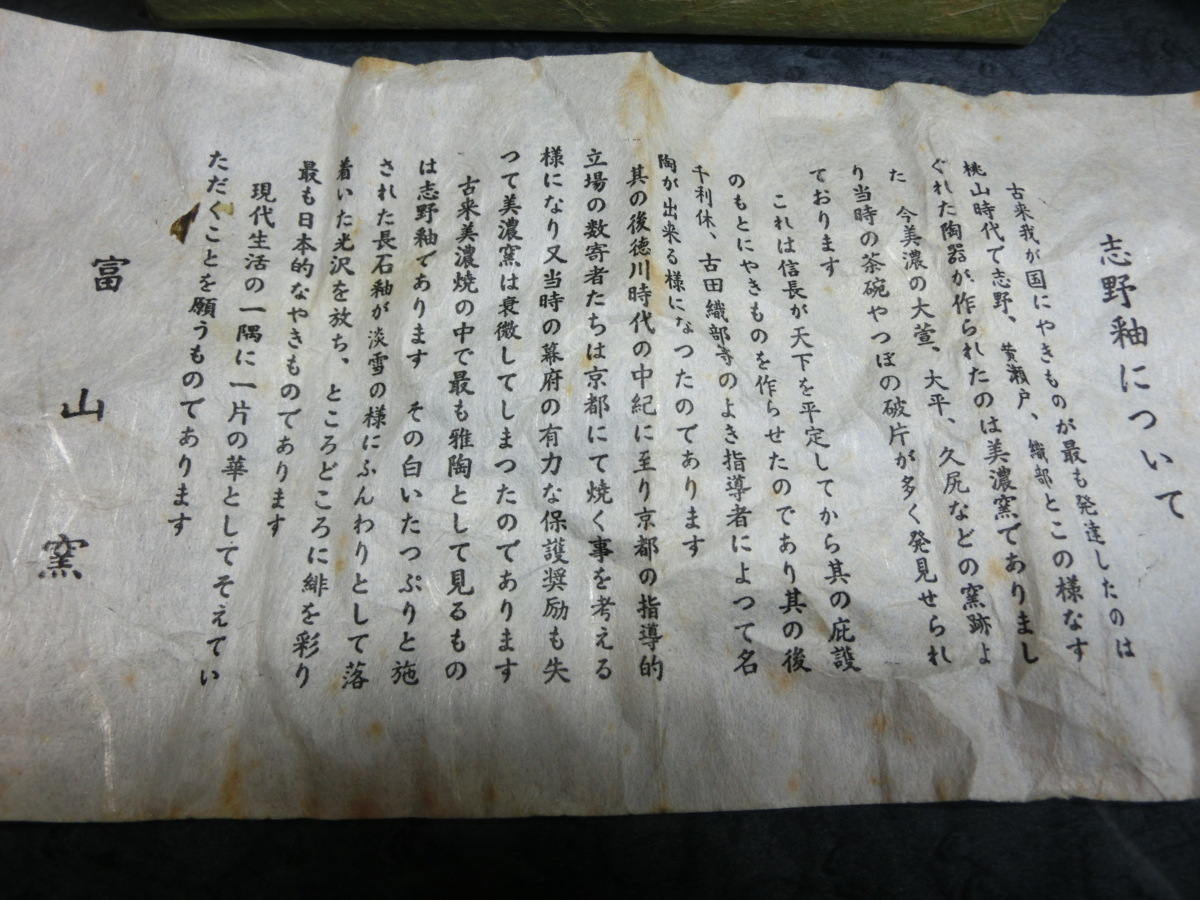 志野釉について
古来我が国にやきものが最も発達したのは
桃山時代で志野、黄瀬戸、織部とこの様なす
ぐれた陶器が作られたのは美濃窯でありまし
た　今美濃の大萱、大平、久尻などの窯跡よ
り当時の茶碗やつぼの破片が多く発見せられ
ております
これは信長が天下を平定してから其の庇護
のもとにやきものを作らせたのであり其の後
千利休、古田織部等のよき指導者によつて名
陶が出来る様になつたのであります
其の後徳川時代の中紀に至り京都の指導的
立場の数寄者たちは京都にて焼く事を考える
様になり又当時の幕府の有力な保護奨励も失
つて美濃窯は衰微してしまつたのであります
古来美濃焼の中で最も雅陶として見るもの
は志野釉であります　その白いたつぷりと施
された長石釉が淡雪の様にふんわりとして落
着いた光沢を放ち、ところどころに緋を彩り
最も日本的なやきものであります
現代生活の一隅に一片の華としてそえてい
ただくことを願うものであります
富山窯